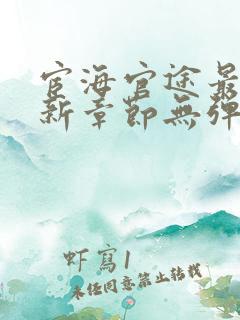 宦海官途最
新章節無彈
虾寫1
未经同意禁止转载